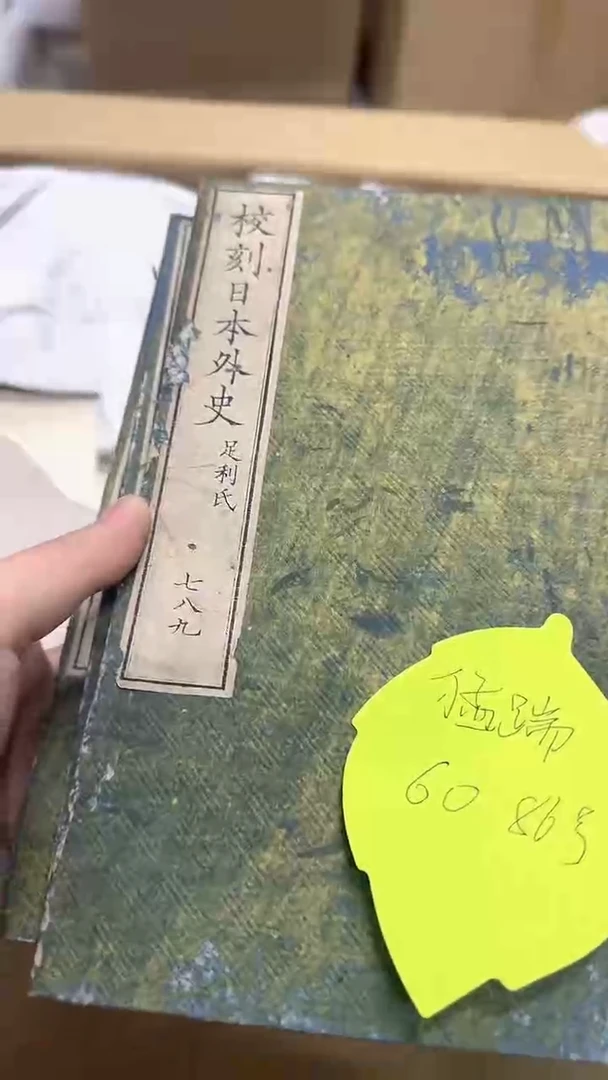 校刻日本外史
足利氏
七八九
猛踹
60 86号